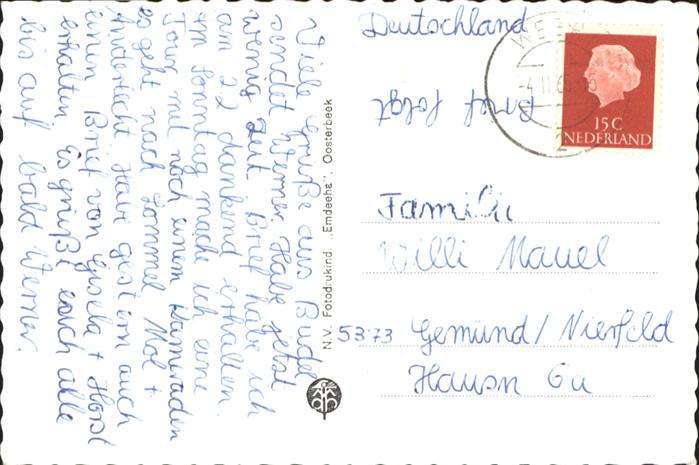 Viele Grüße aus Budel
sendet Werner. Habe jetzt
wenig Zeit. Brief habe ich
am 22 dankend erhalten.
Am Sonntag mache ich eine
Tour mit noch einem Kamraden
es geht nach Lommel Mol +
Anderlecht. Habe gestern auch
einen Brief von Gisela + Horst
erhalten. Es grüßt euch alle
bis auf bald Werner.
N.V. Fotodrukind. „Emdeeha”, Oosterbeek
Deutschland
Brief folgt
WE
-4 II 6
2
15 C
NEDERLAND
Familie
Willi Mauel
5373 Gemünd/Nierfeld
Hausn 6a